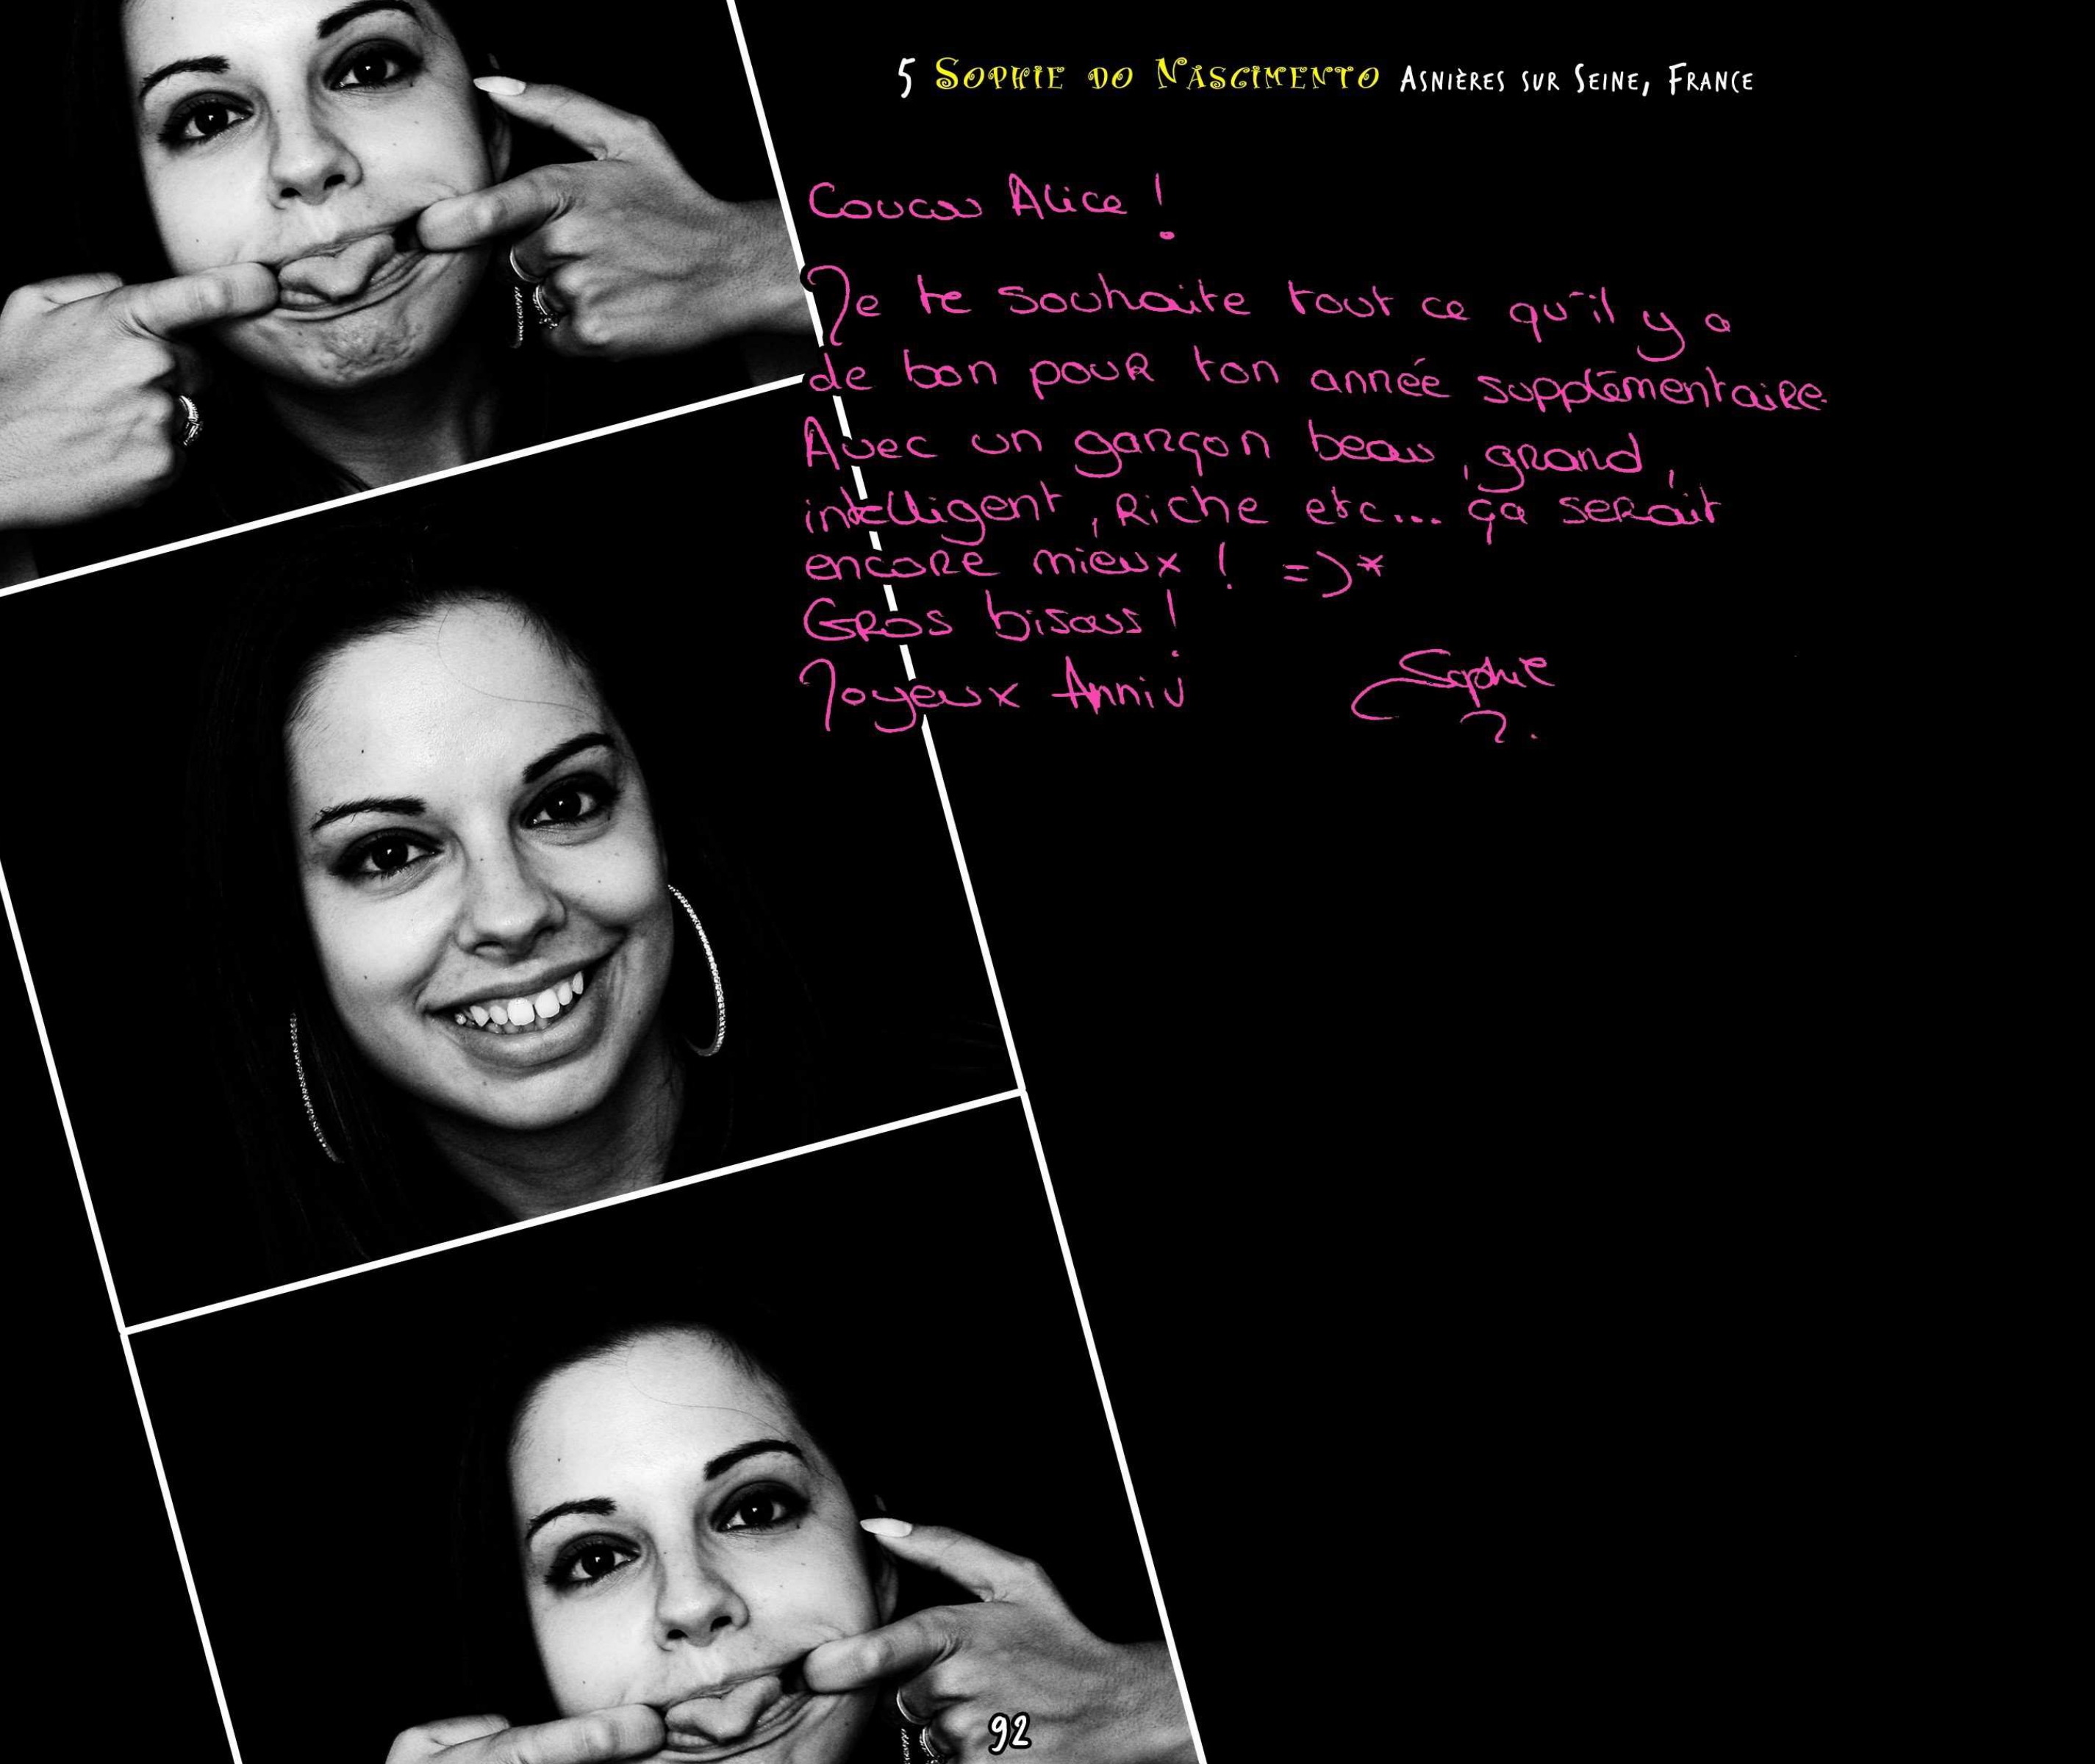 5 Sophie do Nascimento Asnières sur Seine, France
Coucou Alice !
Je te souhaite tout ce qu'il y a
de bon pour ton année supplémentaire.
Avec un garçon beau, grand,
intelligent, riche etc... ça serait
encore mieux ! =)*
Gros bisous !
Joyeux Anniv
Sophie
92